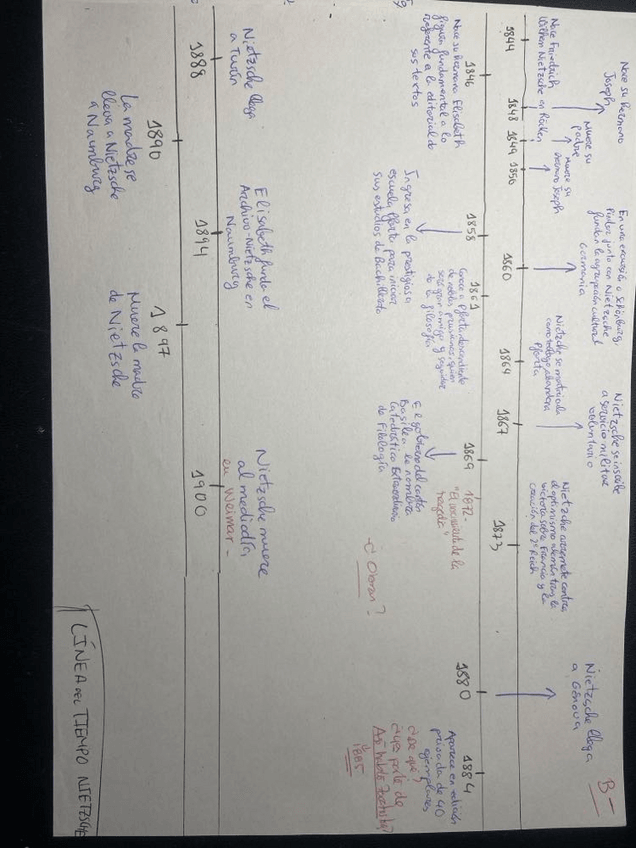 B-
Nace su hermano
Joseph
En una excursión a Schönburg,
Pinder junto con Nietzsche
fundan la agrupación cultural
Germania
Nietzsche se inscribe
a servicio militar
voluntario
Nietzsche llega
a Génova
Muere su
padre
Muere su
hermano Joseph
Nace Friedrich
Wilhem Nietzsche en Röcken
Nietzsche se matricula
como teólogo
Pforta
Nietzsche arremete contra
el optimismo alemán tras la
victoria sobre Francia y la
creación del 2º Reich
1844
1848
1849
1850
1860
1864
1867
1873
1846
1858
1861
1869
1880
1884
Nace su hermana Elisabeth
figura fundamental a lo
referente a la editorial de
sus textos
Ingresa en la prestigiosa
escuela Pforta para iniciar
sus estudios de Bachillerato
Conoce a
de nobles prusianos, quien
será gran amigo y seguidor
de la filosofía
El gobierno del cantón
Basilea le nombra
Catedrático Extraordinario
de Filología
1872-
"El nacimiento de la
tragedia"
-¿Obras?
Aparece en edición
privada de 40
ejemplares
¿De qué?
¿4ta parte de
Así habló Zaratustra?
1885
Nietzsche llega
a Turín
Elisabeth funda el
Archivo-Nietzsche en
Naumburg
Nietzsche muere
al mediodía
en Weimar-
1888
1894
1900
1890
1897
La madre se
lleva a Nietzsche
a Naumburg
Muere la madre
de Nietzsche
LÍNEA del TIEMPO NIETZSCHE